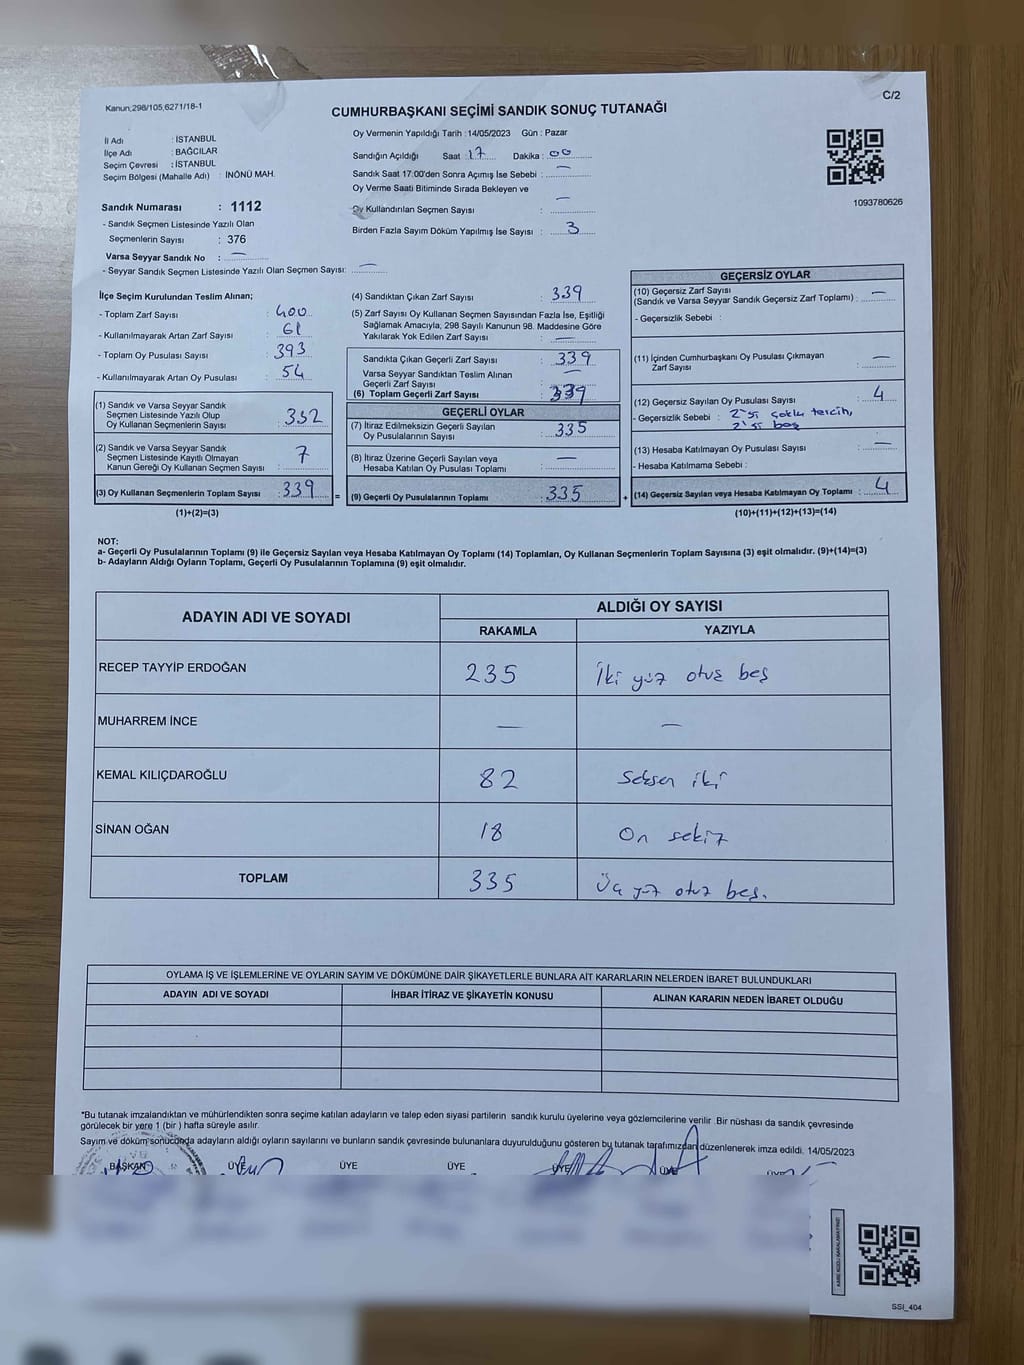 Kanun;298/105,6271/18-1
C/2
CUMHURBAŞKANI SEÇİMİ SANDIK SONUÇ TUTANAĞI
İl Adı : İSTANBUL
İlçe Adı : BAĞCILAR
Seçim Çevresi : İSTANBUL
Seçim Bölgesi (Mahalle Adı) : İNÖNÜ MAH.
Sandık Numarası : 1112
- Sandık Seçmen Listesinde Yazılı Olan
Seçmenlerin Sayısı : 376
Varsa Seyyar Sandık No : —
- Seyyar Sandık Seçmen Listesinde Yazılı Olan Seçmen Sayısı: —
Oy Vermenin Yapıldığı Tarih : 14/05/2023 Gün : Pazar
Sandığın Açıldığı Saat : 17 Dakika : 00
Sandık Saat 17:00'den Sonra Açımış İse Sebebi : —
Oy Verme Saati Bitiminde Sırada Bekleyen ve
Oy Kullandırılan Seçmen Sayısı : —
Birden Fazla Sayım Döküm Yapılmış İse Sayısı : 3
1093780626
İlçe Seçim Kurulundan Teslim Alınan;
- Toplam Zarf Sayısı : 400
- Kullanılmayarak Artan Zarf Sayısı : 61
- Toplam Oy Pusulası Sayısı : 393
- Kullanılmayarak Artan Oy Pusulası : 54
(1) Sandık ve Varsa Seyyar Sandık
Seçmen Listesinde Yazılı Olup
Oy Kullanan Seçmenlerin Sayısı : 332
(2) Sandık ve Varsa Seyyar Sandık
Seçmen Listesinde Kayıtlı Olmayan
Kanun Gereği Oy Kullanan Seçmen Sayısı : 7
(3) Oy Kullanan Seçmenlerin Toplam Sayısı : 339 =
(1)+(2)=(3)
(4) Sandıktan Çıkan Zarf Sayısı : 339
(5) Zarf Sayısı Oy Kullanan Seçmen Sayısından Fazla İse, Eşitliği
Sağlamak Amacıyla, 298 Sayılı Kanunun 98. Maddesine Göre
Yakılarak Yok Edilen Zarf Sayısı : —
Sandıkta Çıkan Geçerli Zarf Sayısı : 339
Varsa Seyyar Sandıktan Teslim Alınan
Geçerli Zarf Sayısı : —
(6) Toplam Geçerli Zarf Sayısı : 339
GEÇERLİ OYLAR
(7) İtiraz Edilmeksizin Geçerli Sayılan
Oy Pusulalarının Sayısı : 335
(8) İtiraz Üzerine Geçerli Sayılan veya
Hesaba Katılan Oy Pusulası Toplamı : —
(9) Geçerli Oy Pusulalarının Toplamı : 335 +
GEÇERSİZ OYLAR
(10) Geçersiz Zarf Sayısı
(Sandık ve Varsa Seyyar Sandık Geçersiz Zarf Toplamı) : —
- Geçersizlik Sebebi :
(11) İçinden Cumhurbaşkanı Oy Pusulası Çıkmayan
Zarf Sayısı : —
(12) Geçersiz Sayılan Oy Pusulası Sayısı : 4
- Geçersizlik Sebebi : 2'si çoklu tercih,
2'si boş
(13) Hesaba Katılmayan Oy Pusulası Sayısı : —
- Hesaba Katılmama Sebebi :
(14) Geçersiz Sayılan veya Hesaba Katılmayan Oy Toplamı : 4
(10)+(11)+(12)+(13)=(14)
NOT:
a- Geçerli Oy Pusulalarının Toplamı (9) ile Geçersiz Sayılan veya Hesaba Katılmayan Oy Toplamı (14) Toplamları, Oy Kullanan Seçmenlerin Toplam Sayısına (3) eşit olmalıdır. (9)+(14)=(3)
b- Adayların Aldığı Oyların Toplamı, Geçerli Oy Pusulalarının Toplamına (9) eşit olmalıdır.
ADAYIN ADI VE SOYADI ALDIĞI OY SAYISI
RAKAMLA YAZIYLA
RECEP TAYYİP ERDOĞAN 235 İki yüz otuz beş
MUHARREM İNCE — —
KEMAL KILIÇDAROĞLU 82 Seksen iki
SİNAN OĞAN 18 On sekiz
TOPLAM 335 Üç yüz otuz beş.
OYLAMA İŞ VE İŞLEMLERİNE VE OYLARIN SAYIM VE DÖKÜMÜNE DAİR ŞİKAYETLERLE BUNLARA AİT KARARLARIN NELERDEN İBARET BULUNDUKLARI
ADAYIN ADI VE SOYADI İHBAR İTİRAZ VE ŞİKAYETİN KONUSU ALINAN KARARIN NEDEN İBARET OLDUĞU
*Bu tutanak imzalandıktan ve mühürlendikten sonra seçime katılan adayların ve talep eden siyasi partilerin sandık kurulu üyelerine veya gözlemcilerine verilir .Bir nüshası da sandık çevresinde
görülecek bir yere 1 (bir ) hafta süreyle asılır.
Sayım ve döküm sonucunda adayların aldığı oyların sayılarını ve bunların sandık çevresinde bulunanlara duyurulduğunu gösteren bu tutanak tarafımızdan düzenlenerek imza edildi. 14/05/2023
BAŞKAN ÜYE ÜYE ÜYE ÜYE ÜYE ÜYE
SSI_404